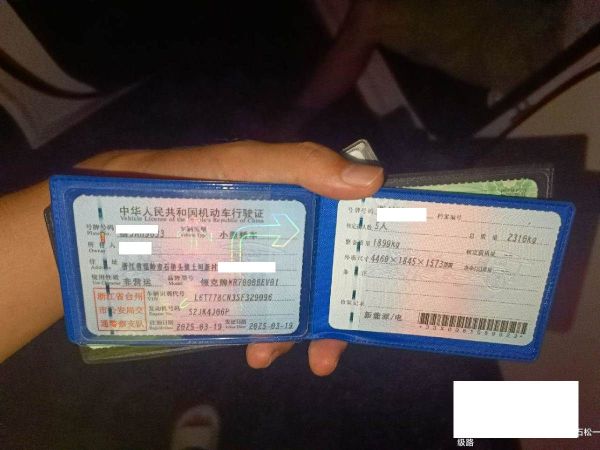 中华人民共和国机动车行驶证
Vehicle License of the People's Republic of China
号牌号码
车辆类型 小型轿车
所有人
Owner
住址
Address
浙江省温岭市石桥头镇上坦新村
使用性质 非营运
品牌型号
Model
领克牌MR7000BEV01
浙江省台州
市公安局交
通警察支队
车辆识别代号
L6T778CN3SF329096
发动机号码
SZJK4J06P
注册日期
2025-03-19
发证日期
2025-03-19
号牌号码
档案编号
核定载人数 5人
总质量 2316kg
整备质量 1890kg
核定载质量
外廓尺寸 4460×1845×1573mm
备注
检验记录
新能源/电
石松一
级路